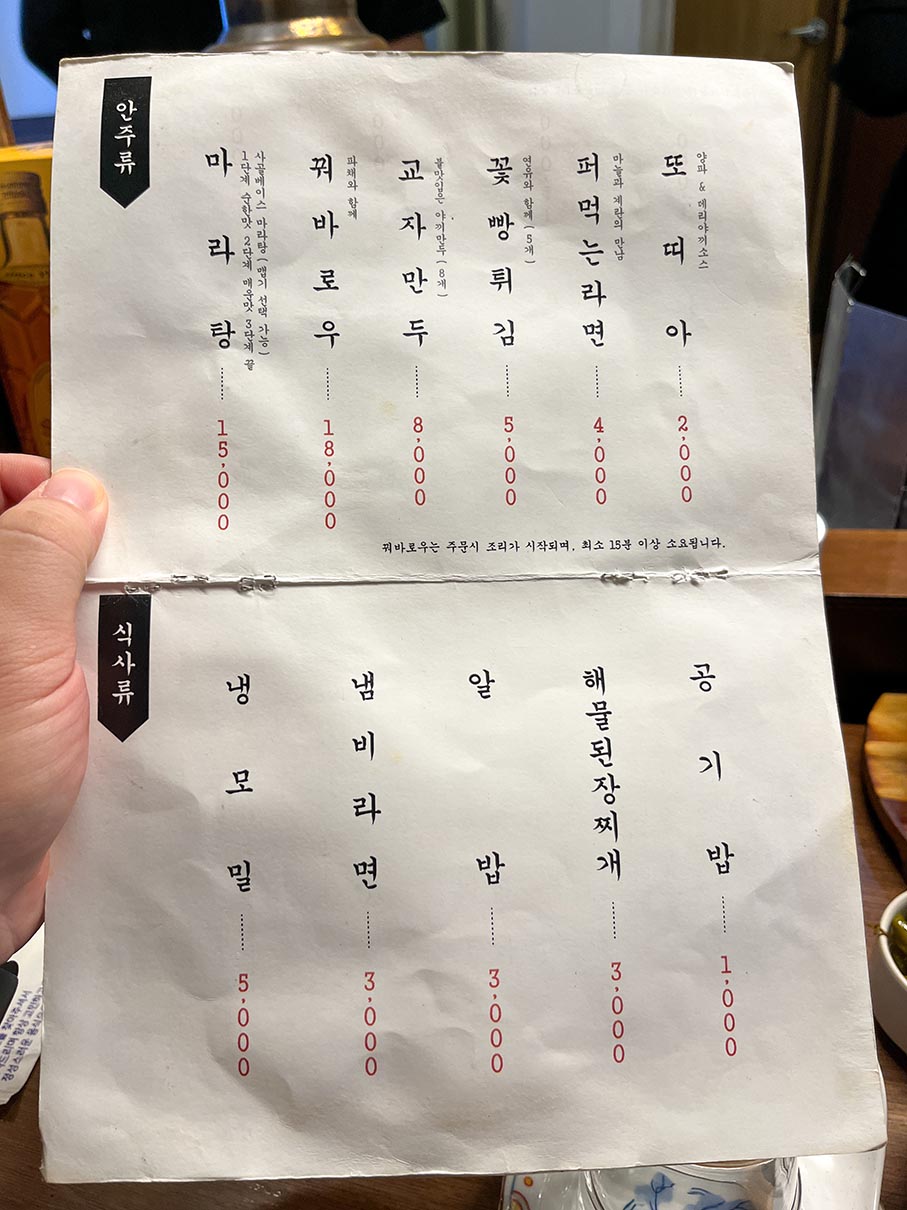 안주류
마라탕
사골베이스 마라탕 (맵기 선택 가능)
1단계 순한맛 2단계 매운맛 3단계 끝
15,000
꿔바로우
파채와 함께
18,000
교자만두
불맛입은 야끼만두 (8개)
8,000
꽃빵튀김
연유와 함께 (5개)
5,000
퍼먹는라면
마늘과 계란의 만남
4,000
또띠아
양파 & 데리야끼소스
2,000
꿔바로우는 주문시 조리가 시작되며, 최소 15분 이상 소요됩니다.
식사류
냉모밀
5,000
냄비라면
3,000
알밥
3,000
해물된장찌개
3,000
공기밥
1,000